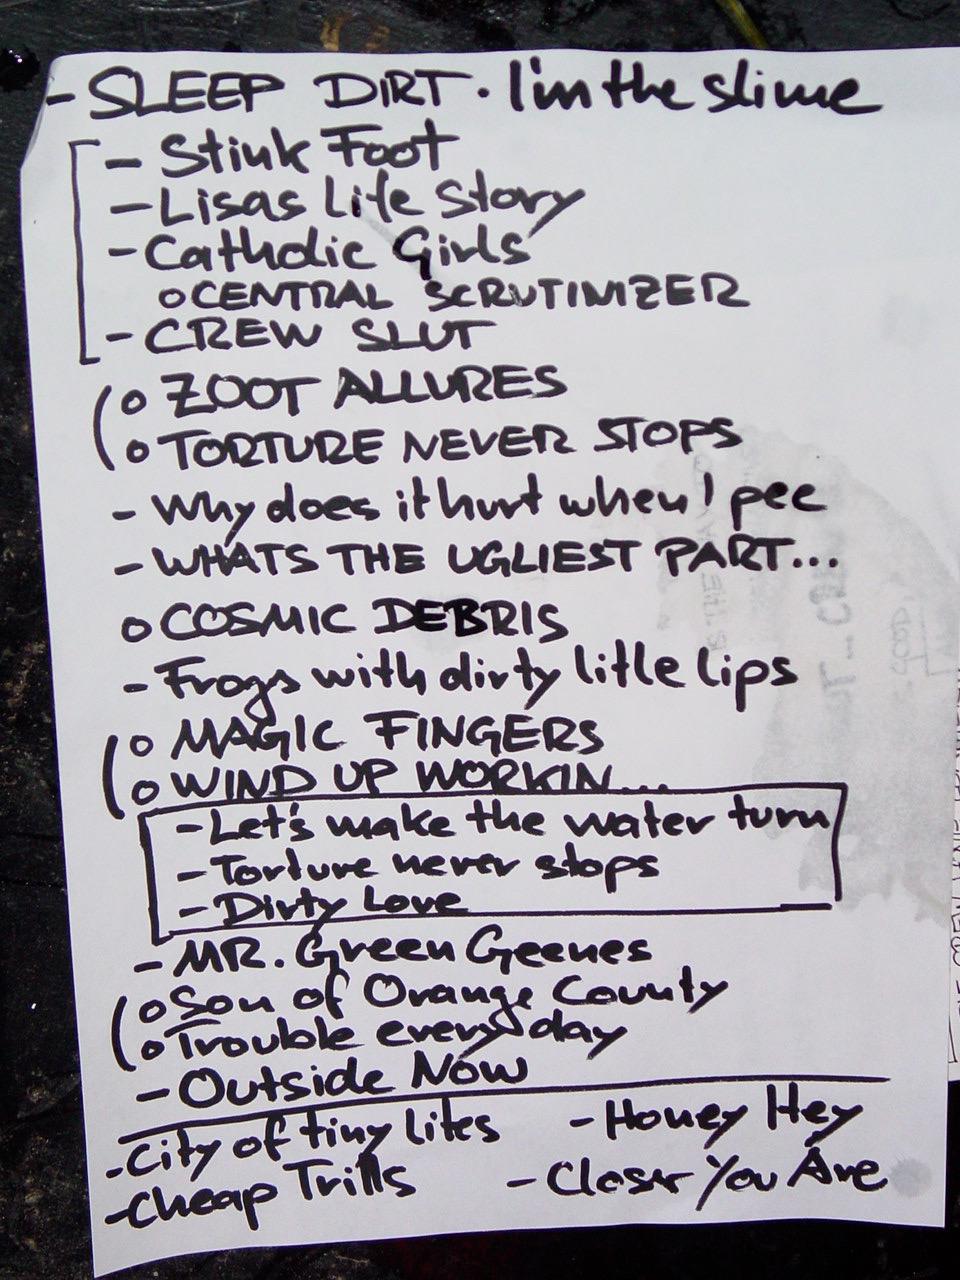 - SLEEP DIRT · I'm the slime
- Stink Foot
- Lisas Life Story
- Catholic Girls
o CENTRAL SCRUTINIZER
- CREW SLUT
o ZOOT ALLURES
o TORTURE NEVER STOPS
- Why does it hurt when I pee
- WHATS THE UGLIEST PART...
o COSMIC DEBRIS
- Frogs with dirty little lips
o MAGIC FINGERS
o WIND UP WORKIN...
- Let's make the water turn
- Torture never stops
- Dirty Love
- MR. Green Geenes
o Son of Orange County
o Trouble every day
- Outside Now
- City of tiny lites
- Honey Hey
- Cheap Trills
- Closer You Are